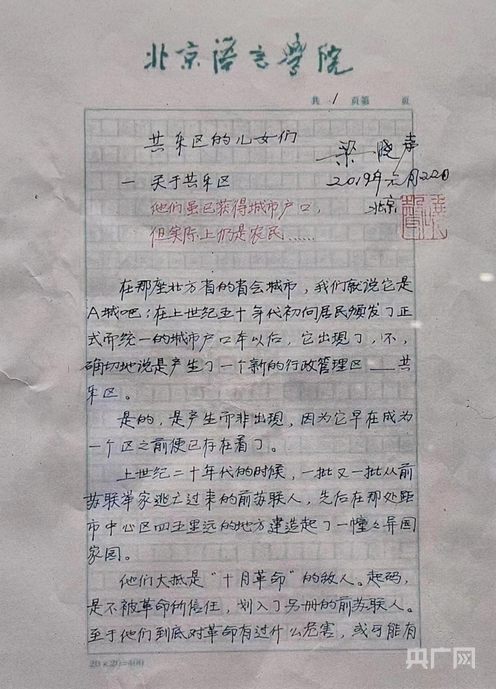 北京语言学院
共 1 页第 页
共乐区的儿女们
梁晓声
一 关于共乐区
2019年元月22日
他们虽已获得城市户口，
北京
但实际上仍是农民……
在那座北方省的省会城市，我们就说它是
A城吧；在上世纪五十年代初向居民颁发了正
式而统一的城市户口本以后，它出现了，不，
确切地说是产生了一个新的行政管理区——共
乐区。
是的，是产生而非出现，因为它早在成为
一个区之前便已存在着了。
上世纪二十年代的时候，一批又一批从前
苏联举家逃亡过来的前苏联人，先后在那处距
市中心区四五里远的地方建造起了一幢幢异国
家园。
他们大抵是“十月革命”的敌人。起码，
是不被革命所信任，划入了另册的前苏联人。
至于他们到底对革命有过什么危害，或可能有
20×20=400
央广网